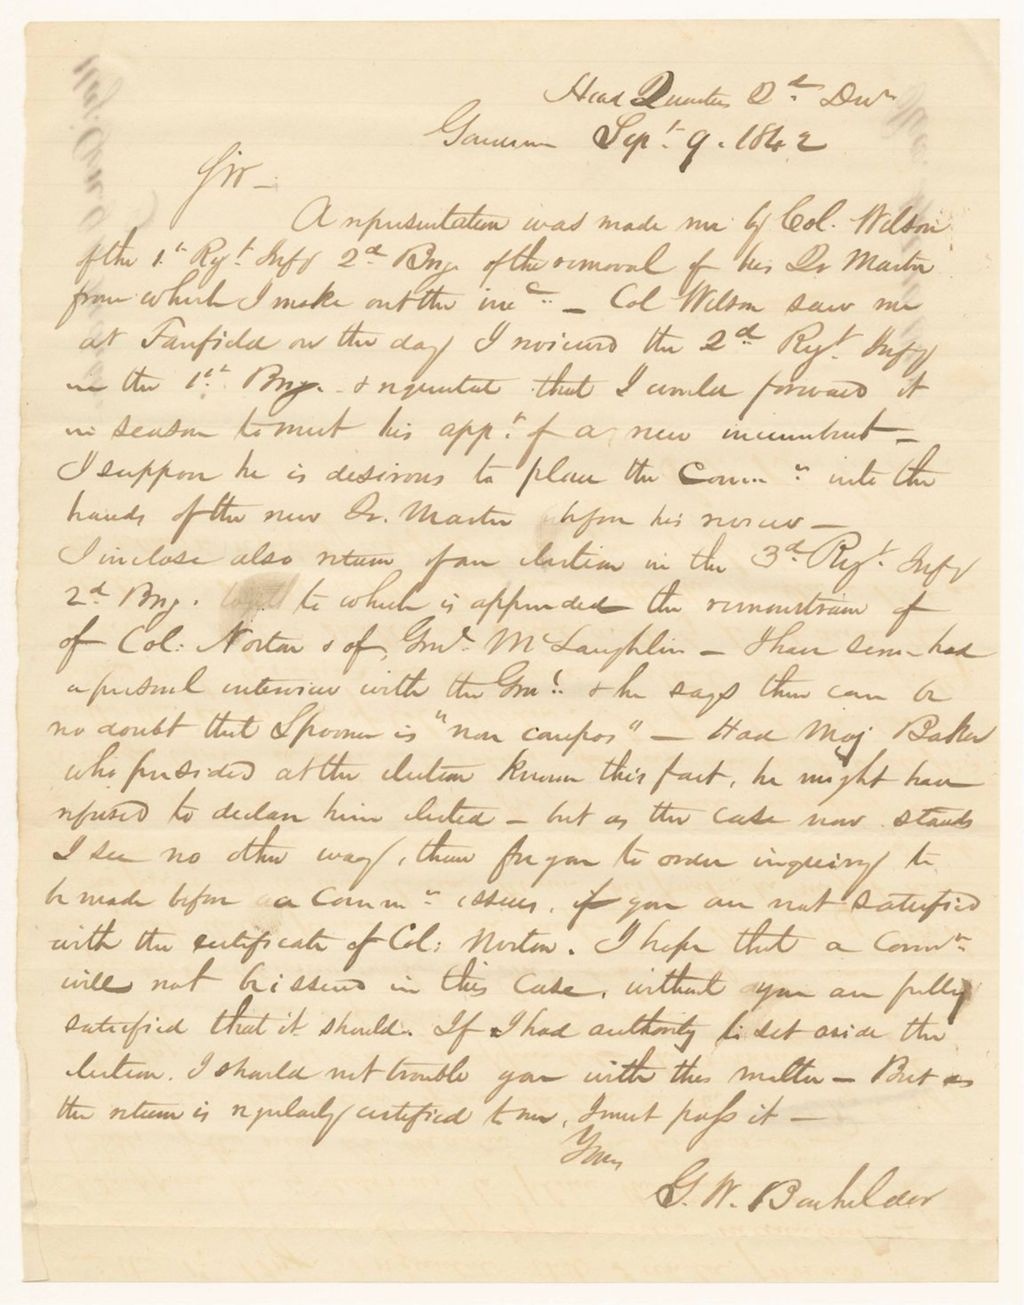 Head Quarters 2d. Divn
Gardiner Sept. 9. 1842
Sir —
A representation was made me by Col. Wilson
of the 1st Regt. Infy 2d Brig. of the removal of his Qr Master
from which I make out the inc. — Col Wilson saw me
at Fairfield on the day I reviewed the 2d Regt. Infy
in the 1st. Brig. & requested that I would forward it
in season to meet his appt. of a new incumbent —
I suppose he is desirous to place the Commn into the
hands of the new Qr. Master before his review —
I inclose also return of an election in the 3d. Regt. Infy
2d Brig. to which is appended the remonstrance of
of Col: Norton & of Genl. McLaughlin — I have since had
a personal interview with the Genl. & he says there can be
no doubt that Spooner is "non compos" — Had Maj Baker
who presided at the election known this fact, he might have
refused to declare him elected — but as the case now stands
I see no other way, than for you to order inquiry to
be made before a commn issues, if you are not satisfied
with the certificate of Col: Norton. I hope that a Commn
will not be issued in this case, without you are fully
satisfied that it should. If I had authority to set aside the
election. I should not trouble you with this matter — But as
the return is regularly certified to me, I must pass it —
Yours
G. W. Bachelder